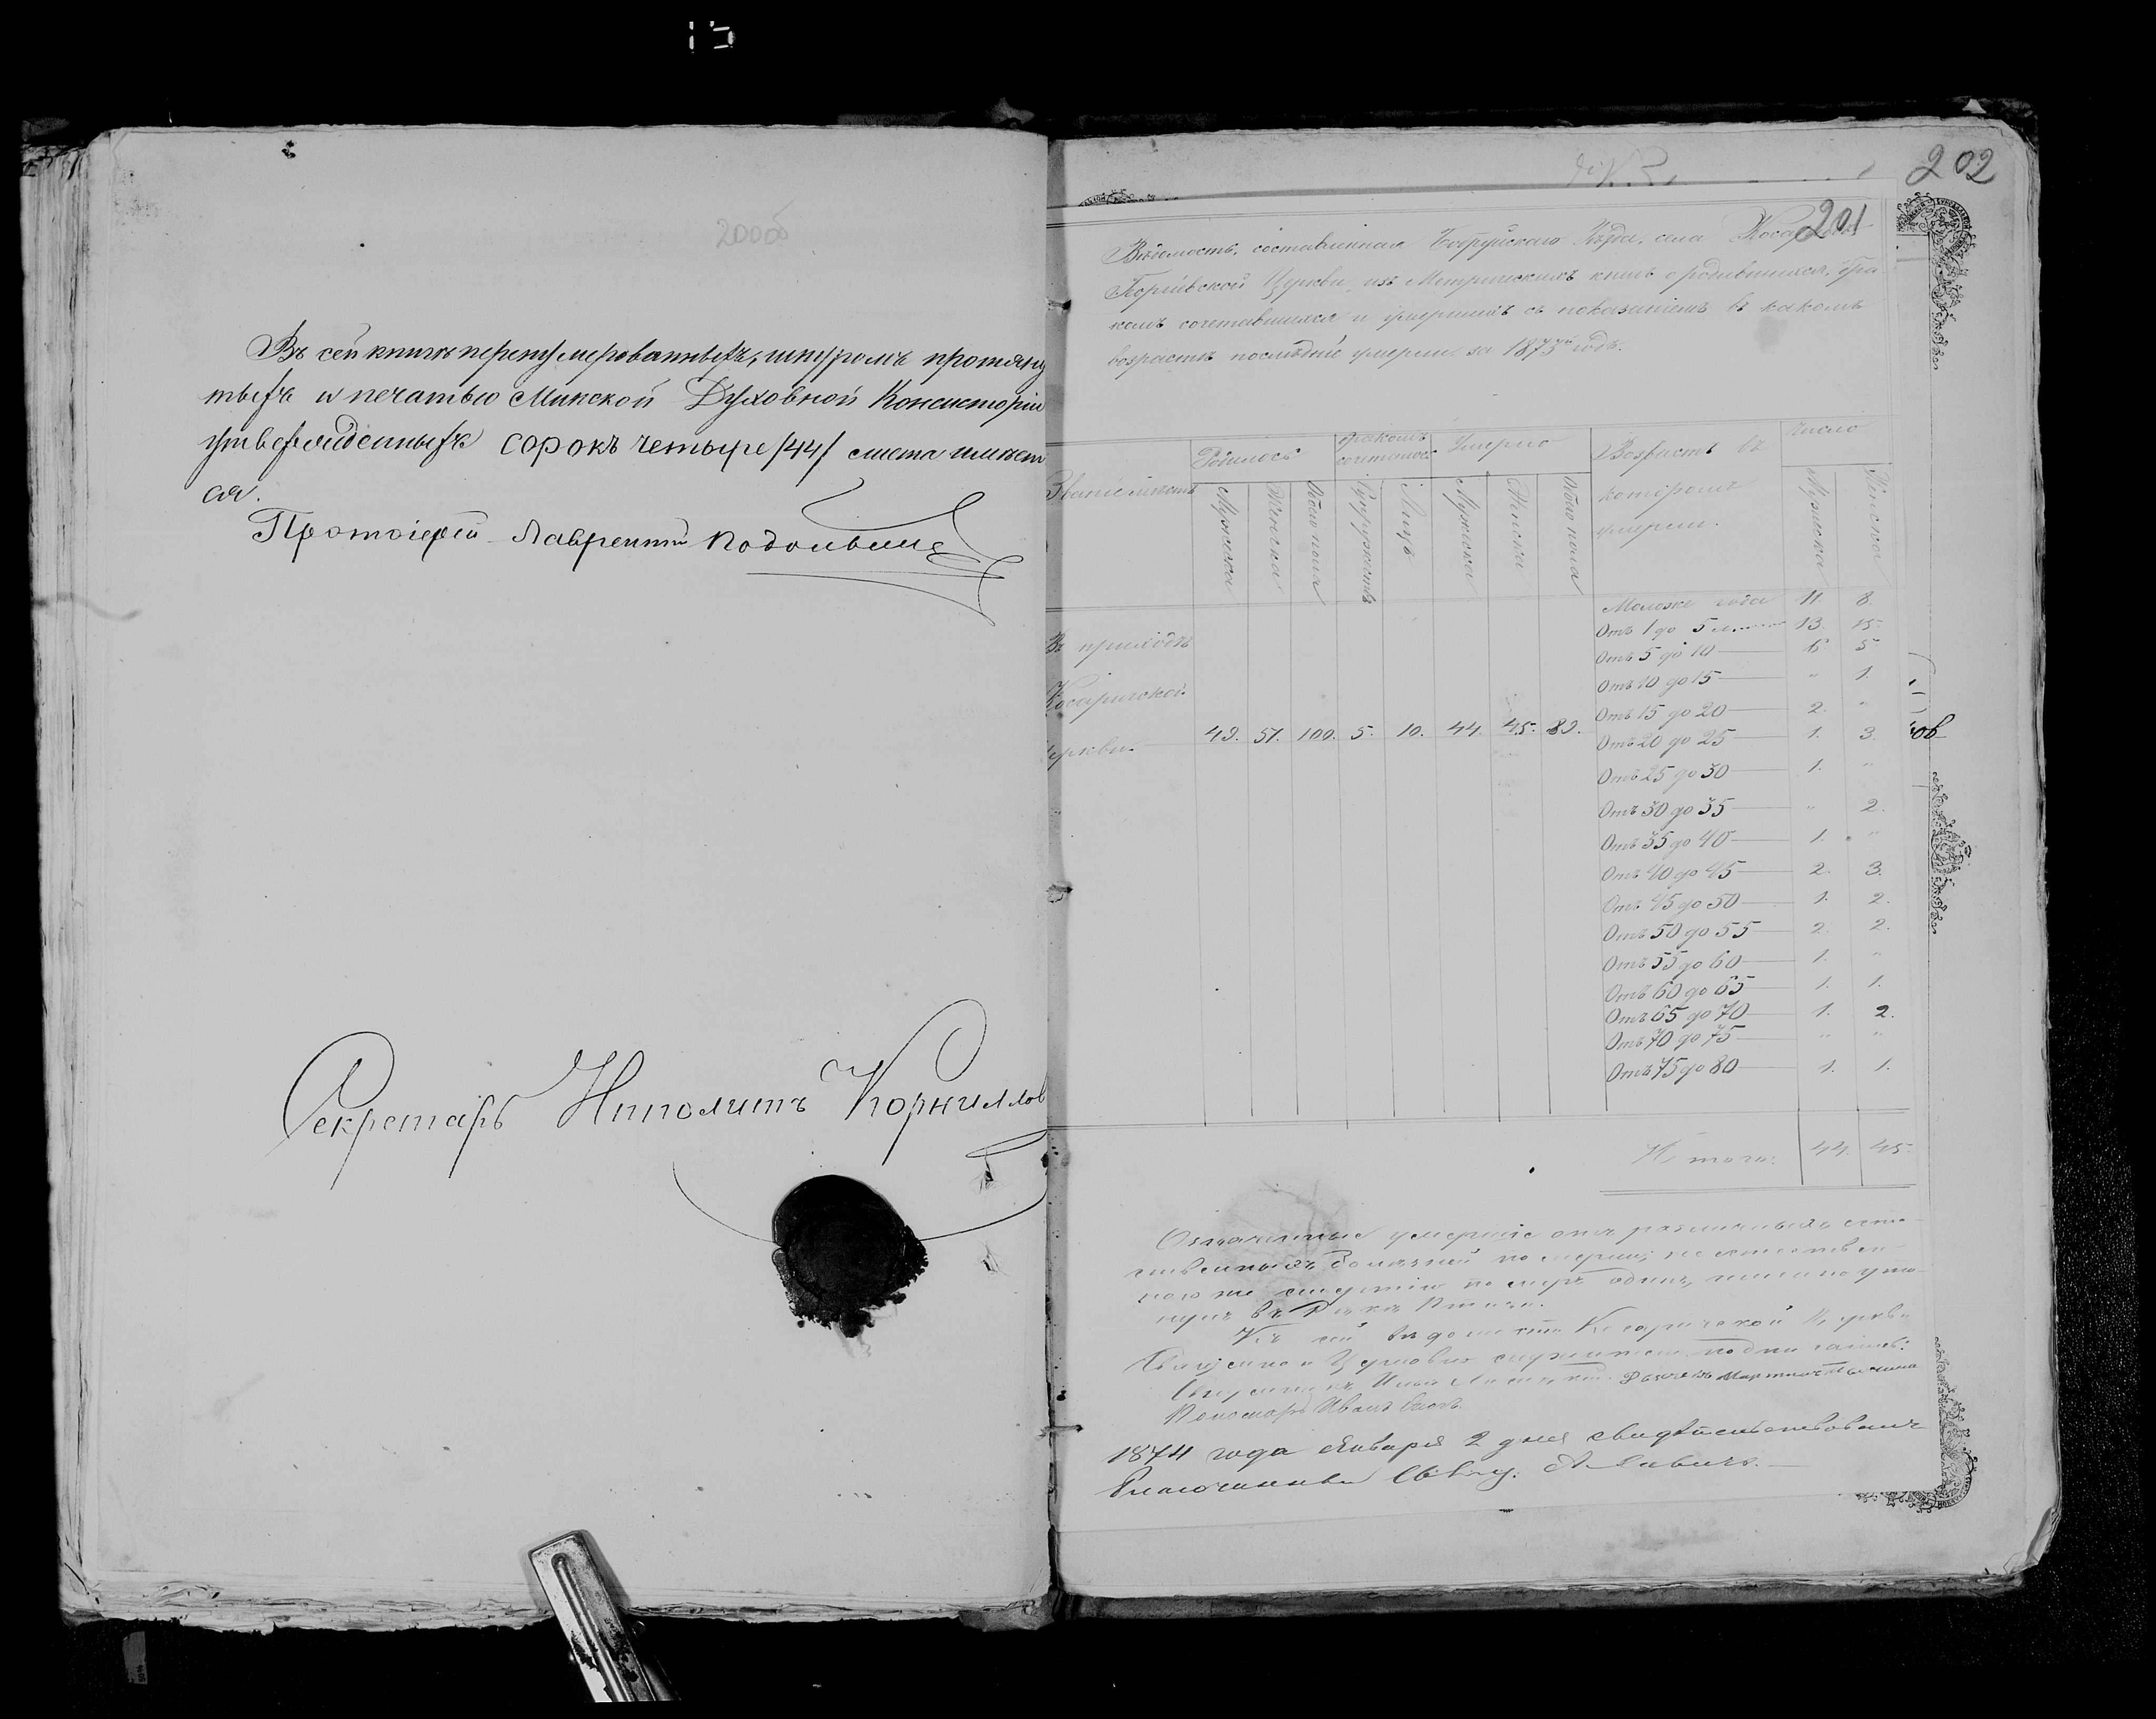 15
200об
Въ сей книгѣ перенумерованныхъ, шнуромъ протяну
тыхъ и печатью Минской Духовной Консисторіи
утвержденныхъ сорокъ четыре /44/ листа имѣет
ся.
Протоіерей Лаврентій
Секретарь Ипполитъ Корниллов
202
201
Вѣдомость, составленная Бобруйскаго Уѣзда, села
Церкви, изъ Метрическихъ книгъ о родившихся, бра
комъ сочетавшихся и умершихъ съ показаніемъ въ какомъ
возрастѣ послѣдніе умерли за 1873й годъ.
Званіе мѣстъ
Родилось
бракомъ сочеталось
Умерло
Возрастъ въ
которомъ
умерли.
Число
Мужеска
Женска
Обоего пола
Супружествъ
Лицъ
Мужеска
Женска
Обоего пола
Мужеска
Женска
Въ приходѣ
Косаричской
Церкви
49. 51. 100. 5. 10. 44. 45. 89.
Моложе года 11. 8.
Отъ 1 до 5 13. 15.
Отъ 5 до 10 5
Отъ 10 до 15 " 1.
Отъ 15 до 20 2. "
Отъ 20 до 25 1. 3.
Отъ 25 до 30 1. "
Отъ 30 до 35 " 2.
Отъ 35 до 40 1. "
Отъ 40 до 45 2. 3.
Отъ 45 до 50 1. 2.
Отъ 50 до 55 2. 2.
Отъ 55 до 60 1. "
Отъ 60 до 65 1. 1.
Отъ 65 до 70 1. 2.
Отъ 70 до 75 " "
Отъ 75 до 80 1. 1.
ов
Итого: 44. 45.
Означенные умершіе отъ различныхъ есте
ственныхъ болѣзней померли; не естествен
ною же смертію померъ одинъ, именно уто
нулъ въ Рѣкѣ Птичи.
Къ сей вѣдомости Косаричской Церкви
Священно и Церковно служители подписались:
Священникъ
Пономарь Иванъ
1874 года Января 2 дня свидѣтельствовалъ
Благочинный Свящ.